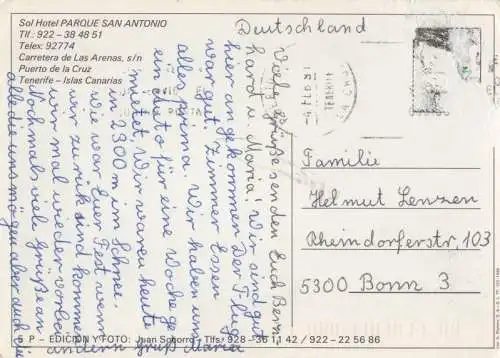 Sol Hotel PARQUE SAN ANTONIO
Tlf.: 922 - 38 48 51
Telex: 92774
Carretera de Las Arenas, s/n
Puerto de la Cruz
Tenerife - Islas Canarias
Deutschland
Viele Grüße senden Euch Bern
hard u. Maria! Wir sind gut
hier angekommen Der Flug
war gut. Zimmer Essen
alles prima. Wir haben uns
ein Auto für eine Woche ge
mietet. Wir waren heute
in 2300 m im Schnee.
Wie war Euer Fest wenn
wir zurück sind kommen
wir mal wieder vorbei
Nochmals viele Grüße an
alle die uns mögen aber auch die
andern Gruß Maria
Familie
Helmut Lenzen
Rheindorferstr, 103
5300 Bonn 3
5 P - EDICION Y FOTO: Juan Socorro - Tlfs: 928 - 36 11 42 / 922 - 22 56 86